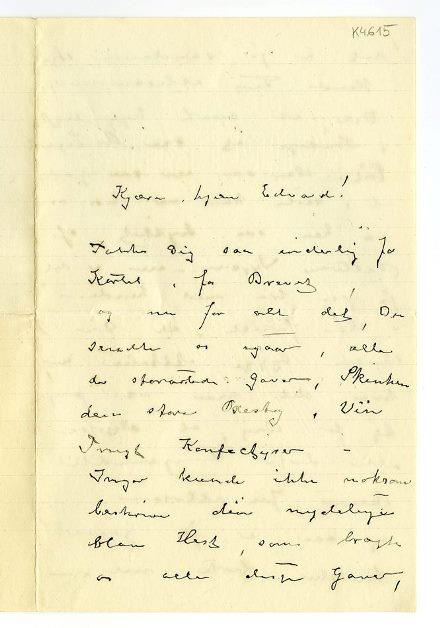 K4615
Kjære, kjære Edvard!
Takke Dig saa inderlig for
Kortet, for Brevet,
og nu for alt det, Du
sendte os igaar, alle
de storartede Gaver, Skinken
den store, Vin
Frugt Konfect
Inger kunde ikke noksom
beskrive den nydelige
blaa Hest, som bragte
os alle disse Gaver,